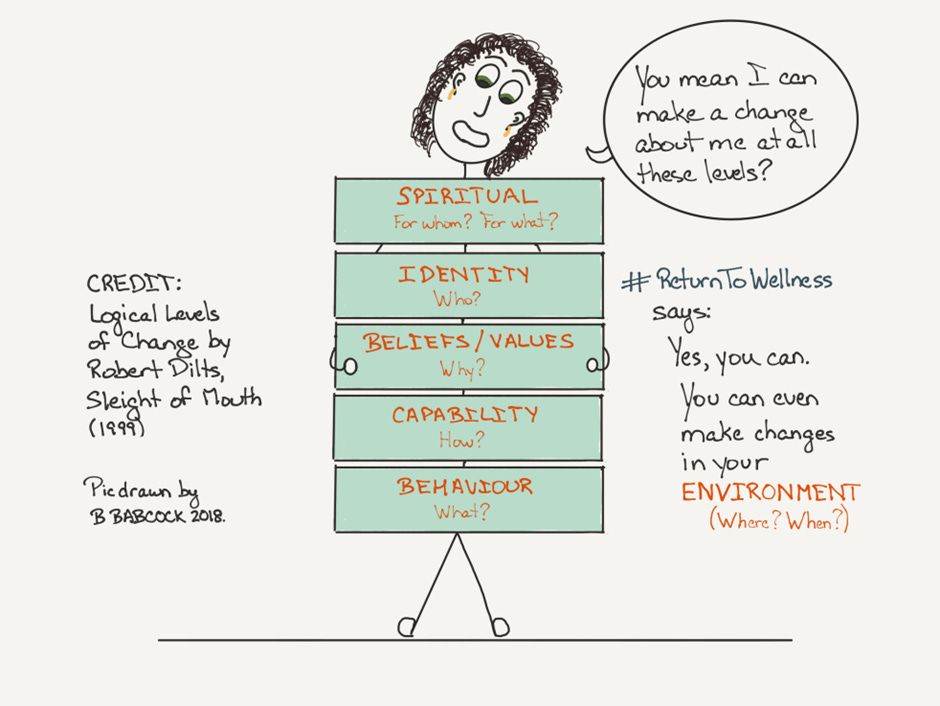 You mean I can
make a change
about me at all
these levels?
SPIRITUAL
For whom? For what?
IDENTITY
Who?
BELIEFS/VALUES
Why?
CAPABILITY
How?
BEHAVIOUR
What?
CREDIT:
Logical Levels
of Change by
Robert Dilts,
Sleight of Mouth
(1999)
Pic drawn by
B BABCOCK 2018.
#ReturnToWellness
says:
Yes, you can.
You can even
make changes
in your
ENVIRONMENT
(Where? When?)